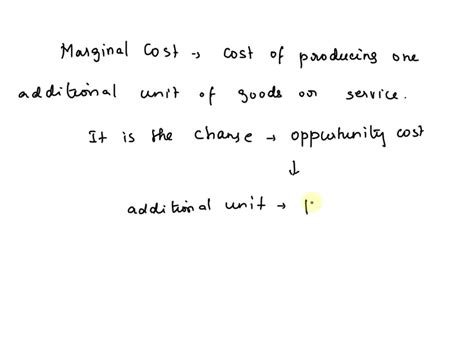 Marginal Cost → cost of producing one
additional unit of goods or service.
It is the change → oppurtunity cost
↓
additional unit →